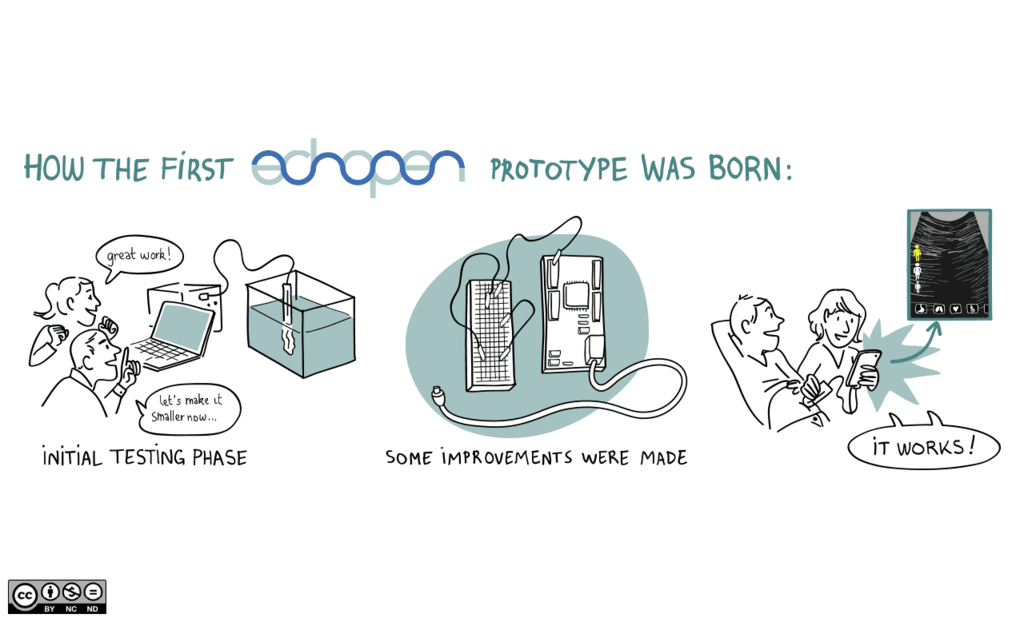 HOW THE FIRST echopen PROTOTYPE WAS BORN:
great work!
let's make it
smaller now...
INITIAL TESTING PHASE
SOME IMPROVEMENTS WERE MADE
IT WORKS!
cc
BY NC ND